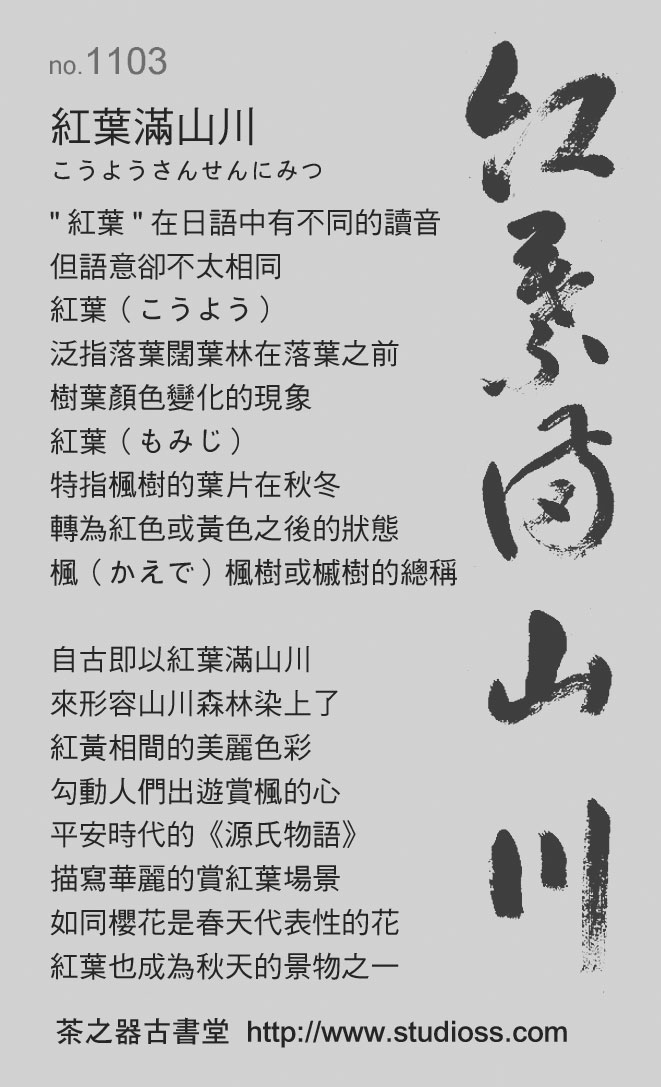 no.1103
紅葉滿山川
こうようさんせんにみつ
" 紅葉 " 在日語中有不同的讀音
但語意卻不太相同
紅葉（こうよう）
泛指落葉闊葉林在落葉之前
樹葉顏色變化的現象
紅葉（もみじ）
特指楓樹的葉片在秋冬
轉為紅色或黃色之後的狀態
楓（かえで）楓樹或槭樹的總稱
自古即以紅葉滿山川
來形容山川森林染上了
紅黃相間的美麗色彩
勾動人們出遊賞楓的心
平安時代的《源氏物語》
描寫華麗的賞紅葉場景
如同櫻花是春天代表性的花
紅葉也成為秋天的景物之一
茶之器古書堂 http://www.studioss.com
紅葉滿山川